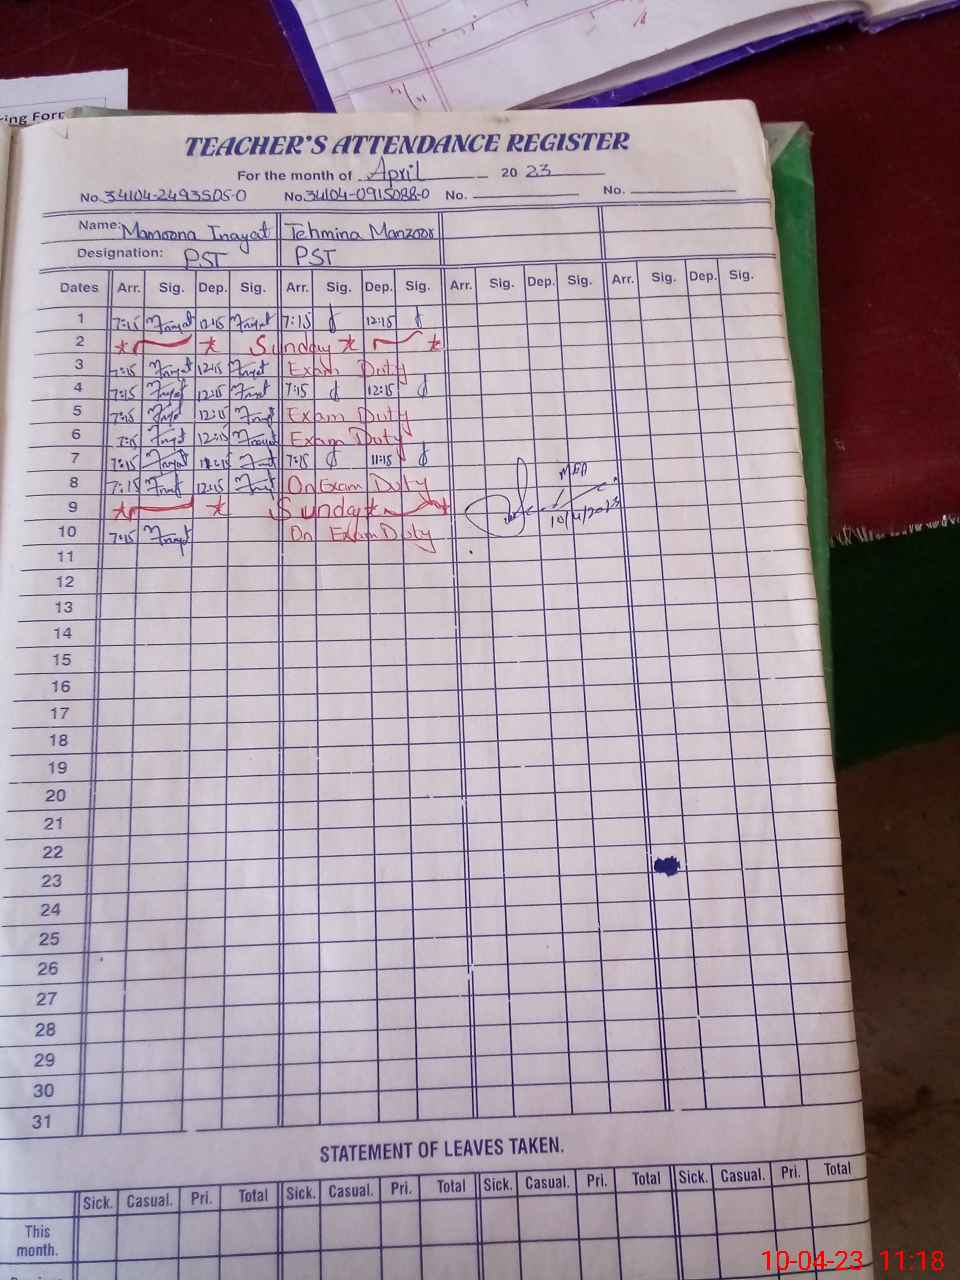 ing Form
TEACHER'S ATTENDANCE REGISTER
For the month of April 2023
No. 34104-2493505-0 No. 34104-0915088-0 No. No.
Name: Mamoona Inayat Tehmina Manzoor
Designation: PST PST
Dates Arr. Sig. Dep. Sig. Arr. Sig. Dep. Sig. Arr. Sig. Dep. Sig. Arr. Sig. Dep. Sig.
1 7:15 Inayat 12:15 Inayat 7:15 12:15
2 Sunday
3 7:15 Inayat 12:15 Inayat Exam Duty
4 7:15 Inayat 12:15 Inayat 7:15 12:15
5 7:15 Inayat 12:15 Inayat Exam Duty
6 7:15 Inayat 12:15 Inayat Exam Duty
7 7:15 Inayat Inayat 7:15 11:15
8 7:15 Inayat 12:15 Inayat On Exam Duty
9 Sunday
MEA
10/4/2023
10 7:15 Inayat On Exam Duty
11
12
13
14
15
16
17
18
19
20
21
22
23
24
25
26
27
28
29
30
31
STATEMENT OF LEAVES TAKEN.
Sick. Casual. Pri. Total Sick. Casual. Pri. Total Sick. Casual. Pri. Total Sick. Casual. Pri. Total
This
month.
10-04-23 11:18